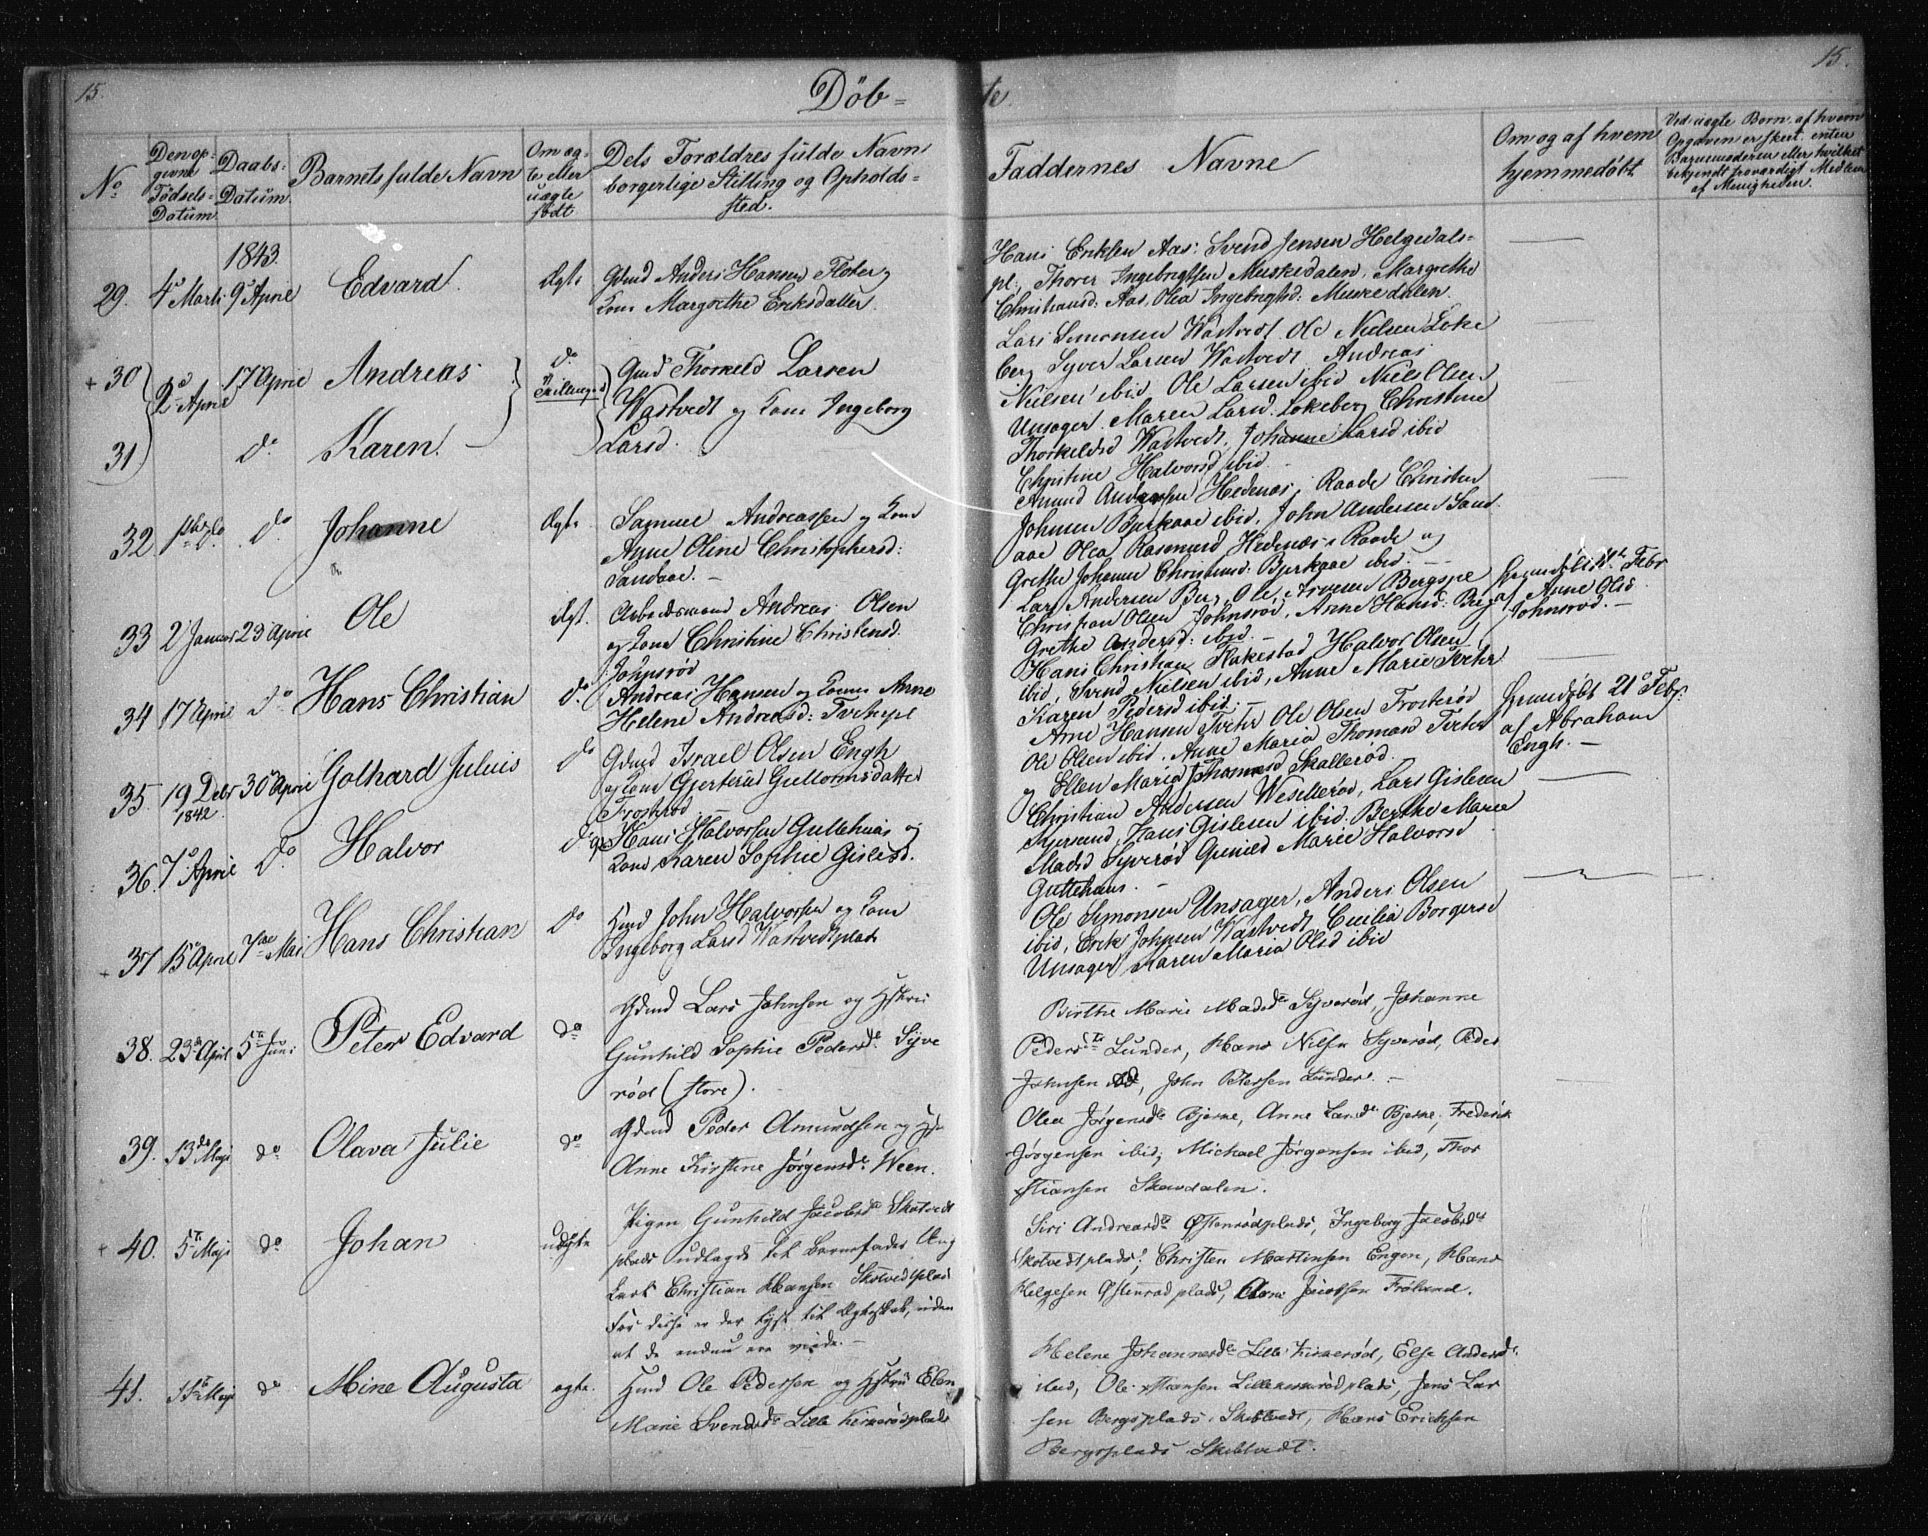 15.
Döb-
te
15.
No
Den op-
givne
Födsels-
Datum.
Daabs-
Datum.
Barnets fulde Navn
Om æg-
te eller
uægte
födt
Dets Forældres fulde Navn
borgerlige Stilling og Opholds-
sted.
Faddernes Navne
Om og af hvem
hjemmedøbt
Ved uægte Børn, af hvem
Opgaven er skeet, enten
Barnemoderen eller hvilket
bekjendt troværdigt Medlem
af Menigheden.
1843.
29. 4 Marts 9 April Edvard. Ægte
Gdmd Anders Hansen
Kone Margrethe Eriksdatter
Hans Aas, Svend Jensen Helgedals-
pl., Thorer Ingebrigtsen Muskedalen, Margrethe
Christiansd: Aas, Olea Ingebrigtsd: Muskedalen.
30 2 April 17 April Andreas do
Gmd Thorkeld Larsen
Wastvedt og Kone Ingeborg
Larsd.
31 do Karen.
Lars Simonsen Wastvedt Ole Nielsen Loke
berg Syver Larsen Wastvedt Andreas
Nielsen ibid Ole Larsen ibid Niels Olsen
Unsager Maren Larsd. Lokeberg Christine
Thorkeldsd Wastvedt, Johanne Larsd ibid
Christine Halvorsd ibid.
32 do Johanne Ægte
Samuel Andreassen og Kone
Anne Oline Christophersd:
Sandaae.
Amund Andersen Hedenæs, Raade Christen
Johnsen Bjerkaae ibid, John Andersen Sand
aae Olea Rasmusd Hedenæs i Raade og
Grethe Johanne Christensd: Bjerkaae ibid.
33 2 Januar 23 April Ole Ægt.
Arbeidsmand Andreas Olsen
og Kone Christine Christensd.
Johnsrød
Lars Andersen Berg, Ole Iversen Bergspl
Christian Olsen Johnsrød, Anne Hansd: Berg
Grethe Andersd: ibid.
Febr
af Anne Olsd
Johnsrød.
34 17 April do Hans Christian do
Andreas Hansen og Kone Anne
Helene Andreasd: Tvetepl
Hans Christian Flakestad Halvor Olsen
ibid, Svend Nielsen ibid, Anne Marie Tveter
Karen Pedersd ibid.
35. 19 Debr 1842. 30 April Golhard Julius do
Gdmd Israel Olsen Engh
og Kone Gjertrud Guttormsdatter
Frosterød
Arne Hansen Tveter Ole Olsen Frosterød
Ole Olsen ibid. Anne Maria Thomasd Tveter
og Ellen Maria Thomasd Skallerød.
21 Febr.
af Abraham
Engh.
36. 7 April do Halvor do
Hans Halvorsen Guttehuus og
Kone Karen Sophie Gislesd.
Christian Andersen Wesellerød, Lars Gislesen
Hans Gislesen ibid. Berthe Marie
Madsd Syverød Gunild Marie Halvorsd
Guttehuus.
37 15 April 7de Mai Hans Christian do
Hmd John Halvorsen og Kone
Ingeborg Larsd Wastvedtplads
Ole Symonsen Unsager, Anders Olsen
ibid, Erik Johnsen Wastvedt Cecilia Borgersd
Unsager Maren Maria Olsd ibid
38. 23 April 5te Juni Peter Edvard do
Gdmd Lars Johnsen og Hstru
Gunhild Sophie Pedersdr. Syve
rød (store).
Birthe Marie Madsdr Syverød, Johanne
Pedersdr Lunder, Hans Nilsen Syverød, Peder
Johnsen ibid, John Petersen Lunder.
39. 13de Maji do Olava Julie do
Gdmd Peder Amundsen og Hst
Anne Kirstine Jørgensdr Ween.
Olea Jørgensdr Bjerke, Anne Larsdr Bjerke, Frederik
Jørgensen ibid, Michael Jørgensen ibid, Thor
Skavdalen.
40. 5te Maji do Johan uægte
Pigen Gunhild Jacobsdr Skotvedt
plads udlagde til Barnefader Ung
karl Christian Hansen Skotvedtplads
For disse er der lyst til Ægteskab, uden
at de endnu ere viede.
Siri Andreasdr Østenrødplads, Ingeborg Jacobsdr
Skotvedtplads, Christen Martinsen Engen, Hans
Helgesen Østenrødplads, Jacobsen Frøland.
41. Maji do Mine Augusta ægte.
Hmd Ole Pedersen og Hstru Elen
Marie Svendsdr Lille Kirkerødplads
Helene Johannesdr Lille Kirkerød, Else Andersdr
ibid, Ole Lillekirkerødplads, Jens Lar
sen Bergsplads Skibtvedt, Hans Erichsen
Bergsplads Skibtvedt.